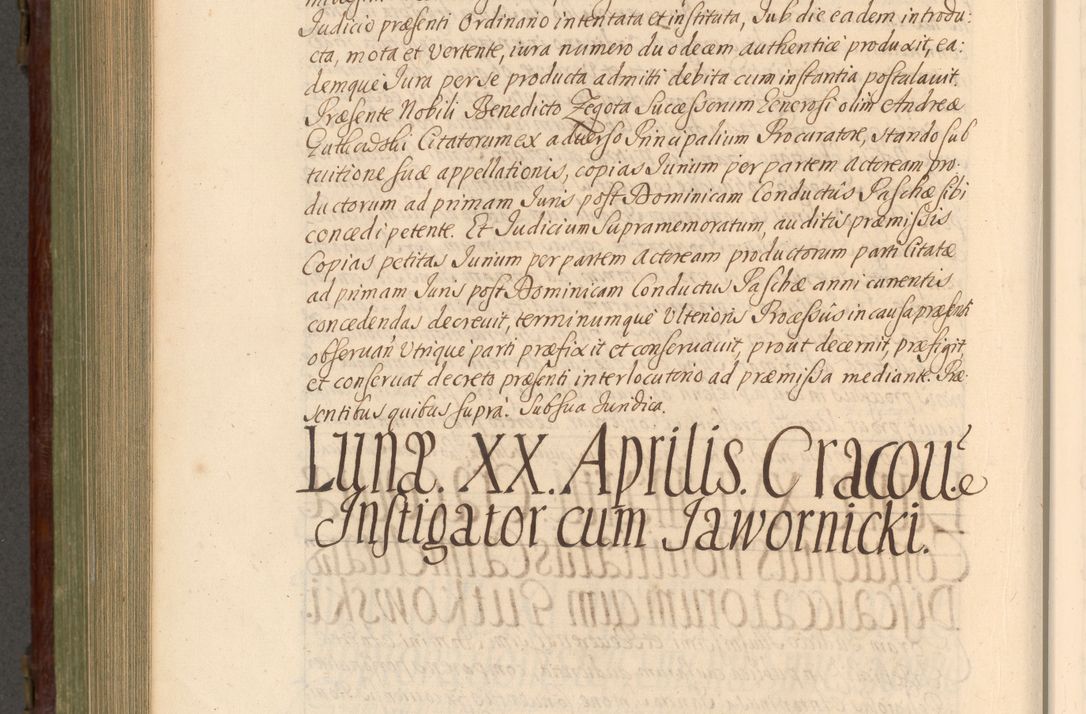 Judicio præsenti Ordinario intentata et instituta, sub die eadem introdu:
cta, mota et vertente, iura numero duodecem authenticè produxit, ea:
demque Jura per se producta admitti debita cum instantia postulauit.
Præsente Nobili Benedicto Zegota Successorum Generosi olim Andreæ
Citatorum ex aduerso Principalium Procuratore, stando sub
tuitione suæ appellationis, copias Jurium per partem actoream pro:
ductorum ad primam Juris post Dominicam Conductûs Paschæ sibi
concedi petente. Et Judicium supramemoratum, auditis præmissis
Copias petitas Jurium per partem Actoream productorum parti Citatæ
ad primam Juris post Dominicam Conductus Paschæ anni currentis
concedendas decreuit, terminumquè Vlterioris Processûs in causa præsenti
obseruan̄ Vtriquè parti præfixit et conseruauit, prout decernit, præfigit,
et conseruat decreto præsenti interlocutorio ad præmissa mediante. Præ:
sentibus quibus suprà. Subsua Juridica.
Lunæ. XX. Aprilis. Cracouie
Instigator cum Jawornicki.